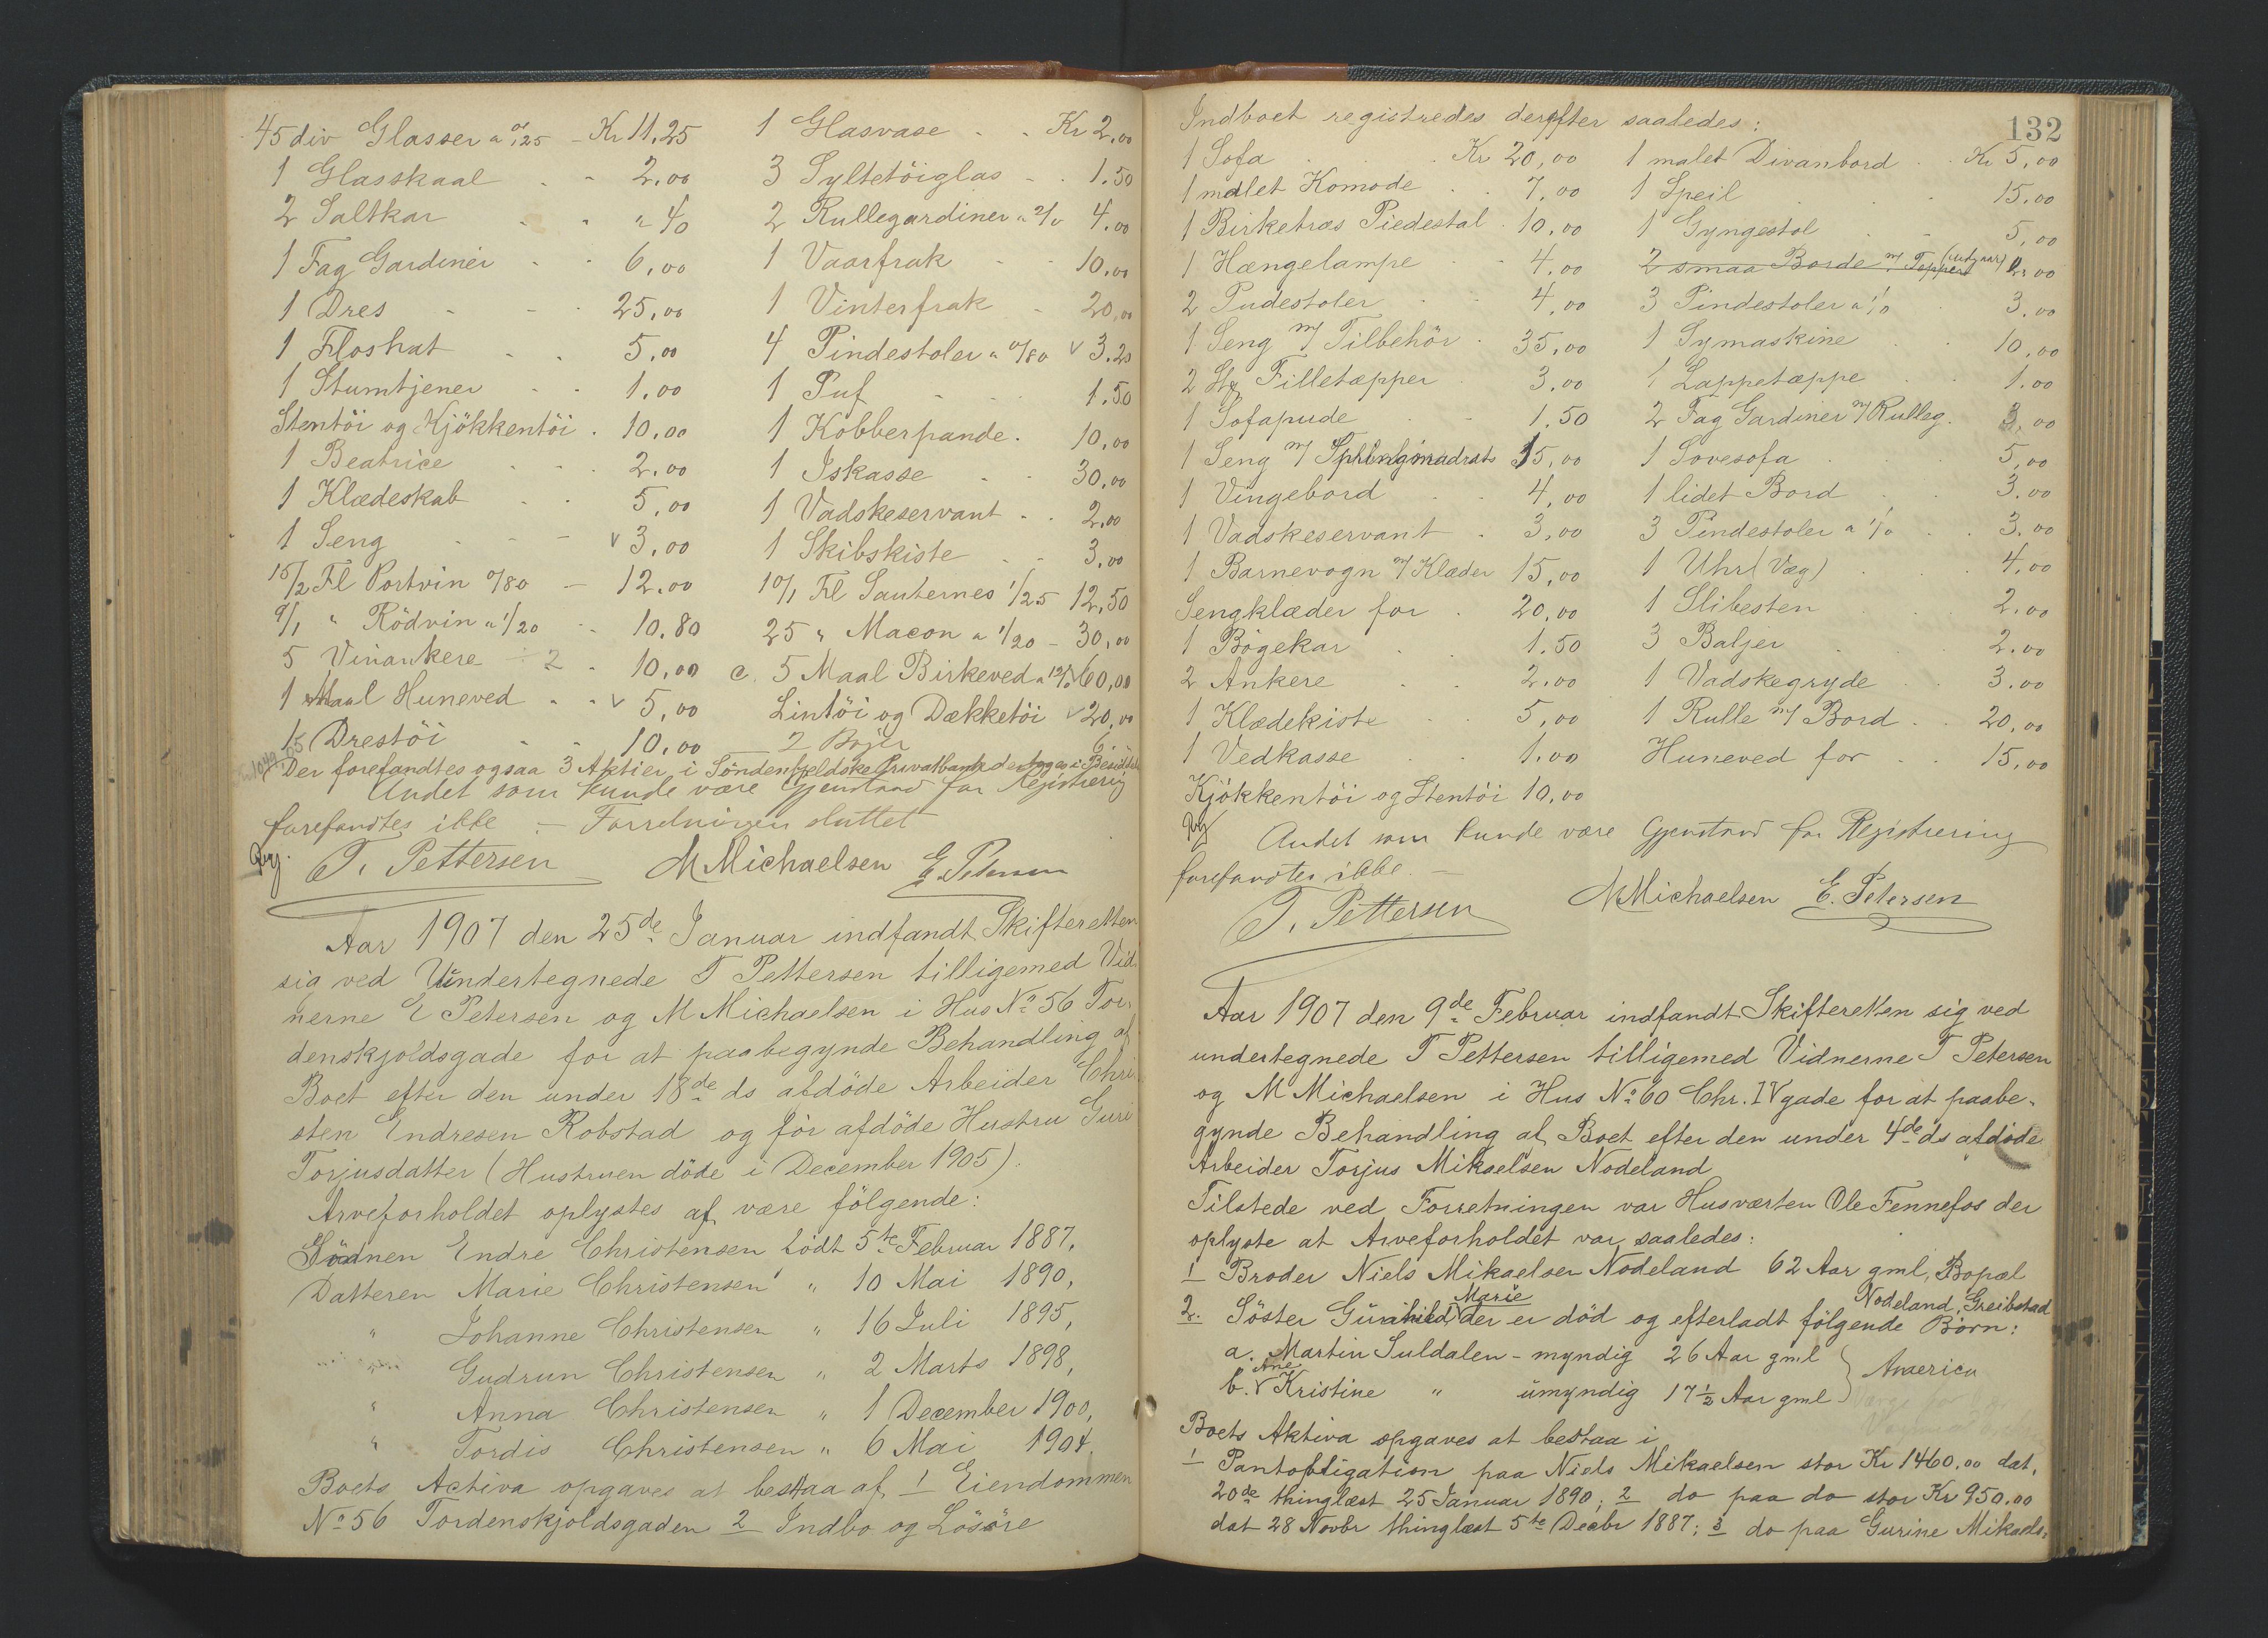 45 div Glasser a 0/25 - Kr 11,25 1 Glasvase - - Kr 2,00
1 Glasskaal - - 2,00 3 Syltetöiglas - - 1.50
2 Saltkar - - " 40 2 Rullegardiner a 2/0 4,00
1 Fag Gardiner - - 6,00 1 Vaarfrak - - 10,00
1 Dres - - - 25,00 1 Vinterfrak - 20,00
1 Floshat - - 5,00 4 Pindestoler a 0/80 v 3.20
1 Stumtjener - - 1,00 1 Puf - - - 1.50
Stentöi og Kjökkentöi . 10,00 1 Kobberpande . 10,00
1 Beatrice - - - 2,00 1 Iskasse - - 30,00
1 Klædeskab - - 5,00 1 Vadskeservant - - 2,00
1 Seng - - - v 3,00 1 Skibskiste - - 3,00
15/2 Fl Portvin 0/80 - 12,00 10/1 Fl Sauternes 1/25 12,50
9/1 " Rödvin a 1/20 - - 10.80 25 " Macon a 1/20 - 30,00
5 Vinankere - 2 - 10,00 c. 5 Maal Birkeved a 12/0 60,00
1 Maal Huneved - - v 5,00 Lintöi og Dækketöi v 20,00
1 Drestöi - - 10,00 2 6.
Der forefandtes ogsaa 3 Aktier i Söndenfjeldske Privatbank
Andet som kunde være Gjenstand for Registrering
forefandtes ikke. - Forretningen sluttet
T. Pettersen M Michaelsen E. Petersen
Aar 1907 den 25de Januar indfandt Skifteretten
sig ved Undertegnede T Pettersen tilligemed Vid-
nerne E Petersen og M Michaelsen i Hus No 56 Tor-
denskjoldsgade for at paabegynde Behandling af
Boet efter den under 18de ds afdöde Arbeider Chri-
sten Endresen Robstad og för afdöde Hustru Guri
Torjusdatter (Hustruen döde i December 1905).
Arveforholdet oplystes af være fölgende:
Sönnen Endre Christensen födt 5te Februar 1887,
Datteren Marie Christensen " 10 Mai 1890,
" Johanne Christensen " 16 Juli 1895,
Gudrun Christensen " 2 Marts 1898,
" Anna Christensen " 1 December 1900,
" Tordis Christensen " 6 Mai 1904.
Boets Activa opgaves at bestaa af 1 Eiendommen
No 56 Tordenskjoldsgaden 2 Indbo og Lösöre
132
Indboet registredes derefter saaledes:
1 Sofa . . . Kr 20,00 1 malet Divanbord . . Kr 5,00
1 malet Komode . . 7,00 1 Speil . . . 15,00
1 Birketræs Piedestal . 10,00 1 Gyngestol . . 5,00
1 Hængelampe . . 4,00 2 smaa Borde m/ Tepper (udgaar) 2,00
2 Pudestoler . . 4,00 3 Pindestoler a 1/0 . 3,00
1 Seng m/ Tilbehör . 35,00 1 Symaskine . . 10,00
2 Stk Filletæpper . 3,00 1 Lappetæppe . . 1.00
1 Sofapude . . 1.50 2 Fag Gardiner m/ Rulleg. 3,00
1 Seng m/ Springmadrats 15,00 1 Sovesofa . . 5,00
1 Vingebord . . 4,00 1 lidet Bord . . 3,00
1 Vadskeservant . 3,00 3 Pindestoler a 1/0 . . 3.00
1 Barnevogn m/ Klæder 15,00 1 Uhr (Væg) . . 4,00
Sengklæder for . 20,00 1 Slibesten . . 2,00
1 Bögekar . . 1.50 3 Baljer . . 2,00
2 Ankere . . 2.00 1 Vadskegryde . . 3.00
1 Klædekiste . . 5,00 1 Rulle m/ Bord . . 20,00
1 Vedkasse . . 1.00 Huneved for . . 15,00
Kjökkentöi og Stentöi 10,00
Andet som kunde være Gjenstand for Registrering
forefandtes ikke. -
T. Pettersen M Michaelsen E. Petersen
Aar 1907 den 9de Februar indfandt Skifteretten sig ved
undertegnede T Pettersen tilligemed Vidnerne T Petersen
og M Michaelsen i Hus No 60 Chr. IV gade for at paabe-
gynde Behandling af Boet efter den under 4de ds afdöde
Arbeider Torjus Mikaelsen Nodeland
Tilstede ved Forretningen var Husværten Ole Fennefos der
oplyste at Arveforholdet var saaledes:
1 Broder Niels Mikaelsen Nodeland 62 Aar gml, Bopæl
Nodeland, Greibstad
2. Söster Gunhild Marie der er död og efterladt fölgende Börn:
a. Martin Suldalen - myndig 26 Aar gml } America
b. Ane Kristine " umyndig 17 1/2 Aar gml
Boets Aktiva opgaves at bestaa i
1 Pantobligation paa Niels Mikaelsen stor Kr 1460.00 dat.
20de thinglæst 25 Januar 1890; 2 do paa do stor Kr 950.00
dat 28 Novbr thinglæst 5te Decbr 1887; 3 do paa Gurine Mikaels-